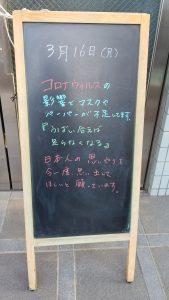 3月16日(月)
コロナウィルスの
影響でマスクや
ペーパーが不足してます。
『うばい合えば
足らなくなる』
日本人の思いやりを
今一度思い出して
ほしいと願っています。